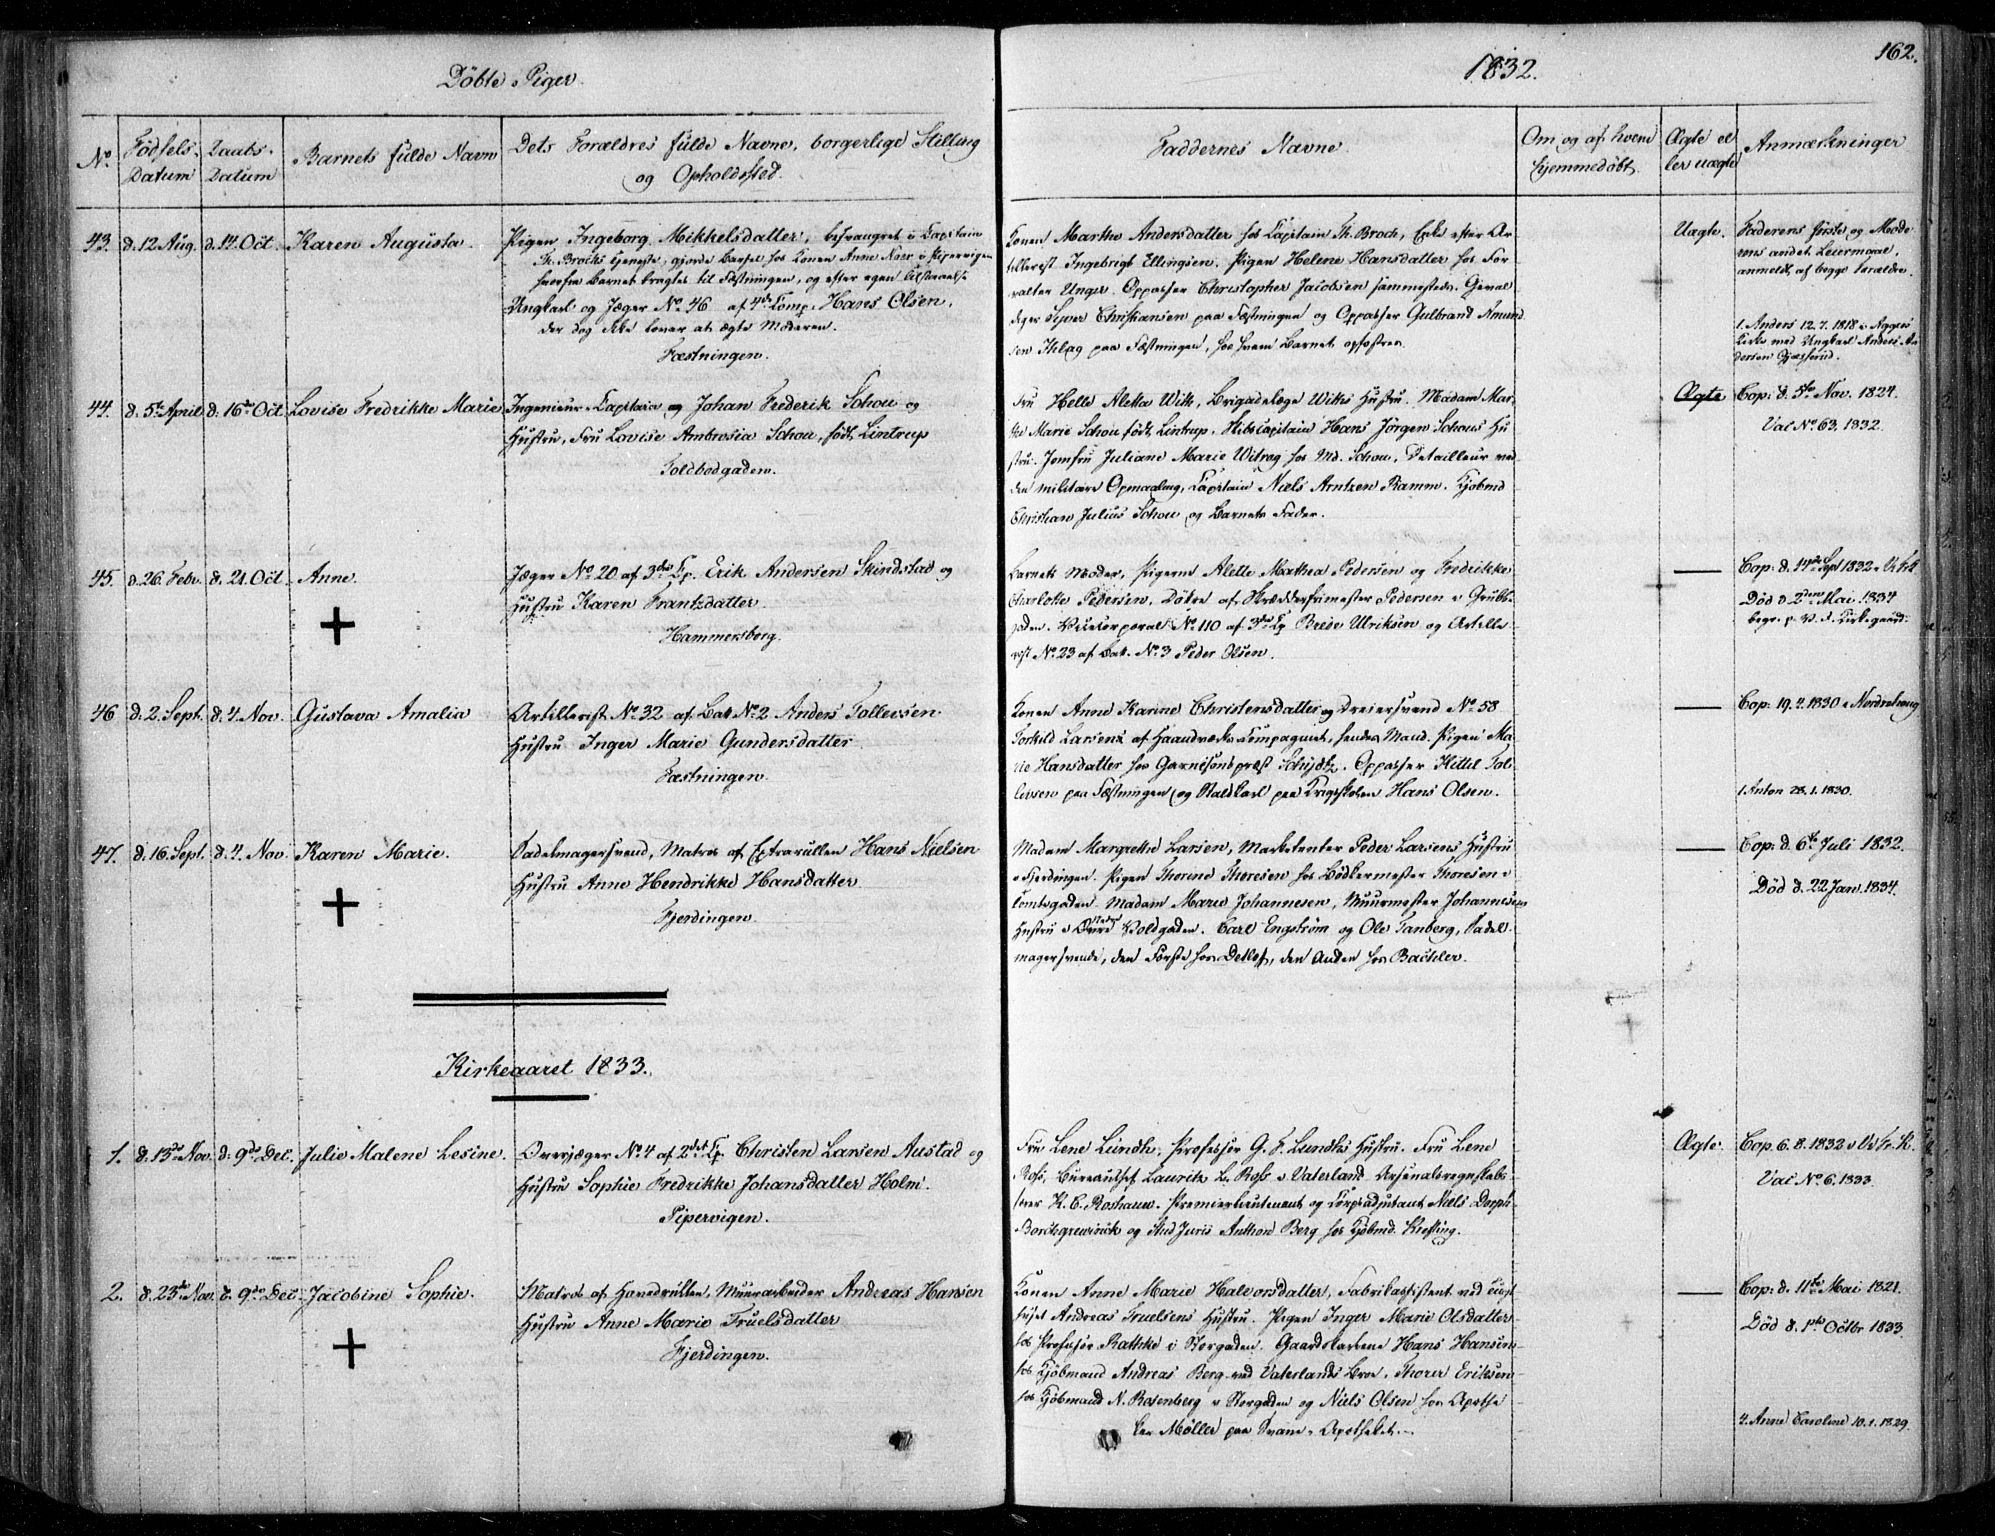 Döbte Piger.
1832.
162.
No.
Födsels Datum
Daabs-Datum
Barnets fulde Navn
Dets Forældres fulde Navne, borgerlige Stilling
og Opholdssted.
Faddernes Navne.
Om og af hvem
hjemmedöbt.
Ægte el
ler uægte
Anmærkninger
43. d. 12 Aug. d. 14. Oct. Karen Augusta.
Pigen Ingeborg Mikkelsdatter, besvangret i Capitain
Th. Brochs tjeneste, gjorde Barsel hos Konen Anne Næss i Pipervigen
hvorfra Barnet bragtes til Fæstningen, og efter egen tilstaaelse
Ungkarl og Jæger No. 46 af 4de Comp. Hans Olsen,
der dog ikke lover at ægte Moderen.
Fæstningen.
Konen Marthe Andersdatter hos Capitain Th. Broch, Enke efter Ar-
tillerist Ingebrigt Ellingsen. Pigen Helene Hansdatter hos For
valter Unger. Oppasser Christopher Jacobsen sammesteds. Geval
diger Syver Christiansen paa Fæstningen og Oppasser Gulbrand Amund
sen paa Fæstningen, hos hvem Barnet opfostres.
Uægte.
Faderens første og Mode
rens andet Leiermaal,
anmeldt af begge Forældre.
1. Anders 12.7.1818 i Aggers
Kirke med Ungkarl Anders An
dersen
44. d. 5te April d. 16de Oct. Lovise Fredrikke Marie
Ingenieur-Capitain og Johan Frederik Schou og
Hustru, Fru Lovise Ambrosia Schou, født Lintrup
Toldbodgaden.
Fru Helle Aletta With, Brigadelæge Withs Hustru. Madam Mar-
the Marie Schou født Lintrup, Skibscapitain Hans Jörgen Schous Hu
stru. Jomfru Juliane Marie Witrog hos Md. Schou, Detailleur ved
den militaire Opmaaling, Capitain Niels Arntzen Ramm. Kjöbmd
Christian Julius Schou og Barnets Fader.
Ægte
Cop: d. 5te Nov. 1824.
Vac No. 63. 1832.
45 d. 26. Febr. d. 21. Oct. Anne.
Jæger No. 20 af 3die Cp. Erik Andersen Skindstad og
Hustru Karen Frantzdatter.
Hammersborg.
Barnets Moder, Pigerne Alette Mathea Pedersen og Fredrikke
Charlotte Pedersen, Døtre af Skræddermester Pedersen i Grubbe
gaden. Vicecorporal No. 110 af 3die Cp Brede Ulriksen og Artille-
rist No. 23 af Bat. No. 3 Peder Olsen.
Cop: d. 14de Sept 1832 i
Död d 2den Mai 1834
begr. p. Kirkegaard.
46 d. 2. Sept. d. 4. Nov. Gustava Amalia
Artillerist No. 32 af Bat No. 2 Anders Tollevsen
Hustru Inger Marie Gundersdatter.
Fæstningen.
Konen Anne Karine Christensdatter og Dreiersvend No. 58
Torkild Larsens af Haandværks Compagniet, hendes Mand. Pigen Ma-
rie Hansdatter hos Garnisonspræst Schydtz. Oppasser Kittil Tol-
levsen paa Fæstningen og Staldkarl paa Krigsskolen Hans Olsen.
Cop: 19.4.1830 i Nordrehoug
1. Anton 28.1.1830.
47. d. 16. Sept. d. 4. Nov. Karen Marie.
Sadelmagersvend, Matros af Extrarullen Hans Nielsen
Hustru Anne Hendrikke Hansdatter
Fjerdingen.
Madam Margrethe Larsen, Marketenter Peder Larsens Hustru
i Fjerdingen. Pigen Thorine Thoresen hos Bödkermester Thoresen i
Tomtegaden. Madam Marie Johannesen, Muurmester Johannesens
Hustru i Øvre Nedre Voldgaden. Carl Engström og Ole Tanberg, Sadel-
magersvende, den Første hos Detlof, den Anden hos Bachler.
Cop: d. 6te Juli 1832.
Död d. 22 Jan. 1834.
Kirkeaaret 1833.
1. d. 13de Nov. d. 9de Dec. Julie Malene Lesine.
Overjæger No. 4 af 2det Cp. Christen Larsen Austad og
Hustru Sophie Fredrikke Johansdatter Holm.
Pipervigen.
Fru Lene Lundh, Professor G. F. Lundhs Hustru. Fru Lene
Ross, Bureauchef Lauritz L. Ross i Vaterland. Arsenalsregnskabs
fører K. C. Roshauw. Premierlieutenant og Corpsadjutant Niels Dorph
Borchgrewinck og Stud Juris Anthon Berg hos Kjöbmd. Kiessing.
Ægte.
Cop. 6.8.1832 i Vr Fr. K.
Vac No. 6. 1833.
2. d. 23de Nov. d. 9de Dec. Jacobine Sophie.
Matros af Hovedrullen, Muurarbeider Andreas Hansen
Hustru Anne Marie Truelsdatter
Fjerdingen.
Konen Anne Marie Halvorsdatter, Fabrikassistent ved Tugt
huset Andreas Truelsens Hustru. Pigen Inger Marie Olsdatter
hos Professor Rathke i Storgaden. Gaardskarlene Hans Hansen
hos Kjöbmand Andreas Berg ved Vaterlands Broe, Thorer Eriksen
hos Kjöbmand N. Rosenberg i Storgaden og Niels Olsen hos Apothe
ker Møller paa Svane-Apotheket.
Cop: d. 11te Mai 1821.
Död d. 1ste Octbr 1833
4. Anne Caroline 10.1.1829.